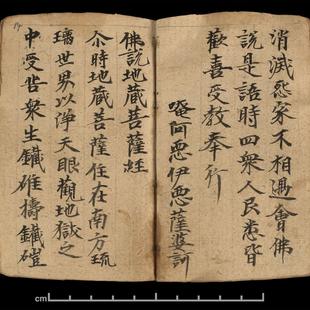 消滅怨家不相遇會佛
說是語時四衆人民悉皆
歡喜受教奉行
唵阿惡伊惡薩婆訶
佛說地藏菩薩經
尒時地藏菩薩住在南方琉
璃世界以淨天眼觀地獄之
中受苦衆生鐵碓擣鐵磑
cm